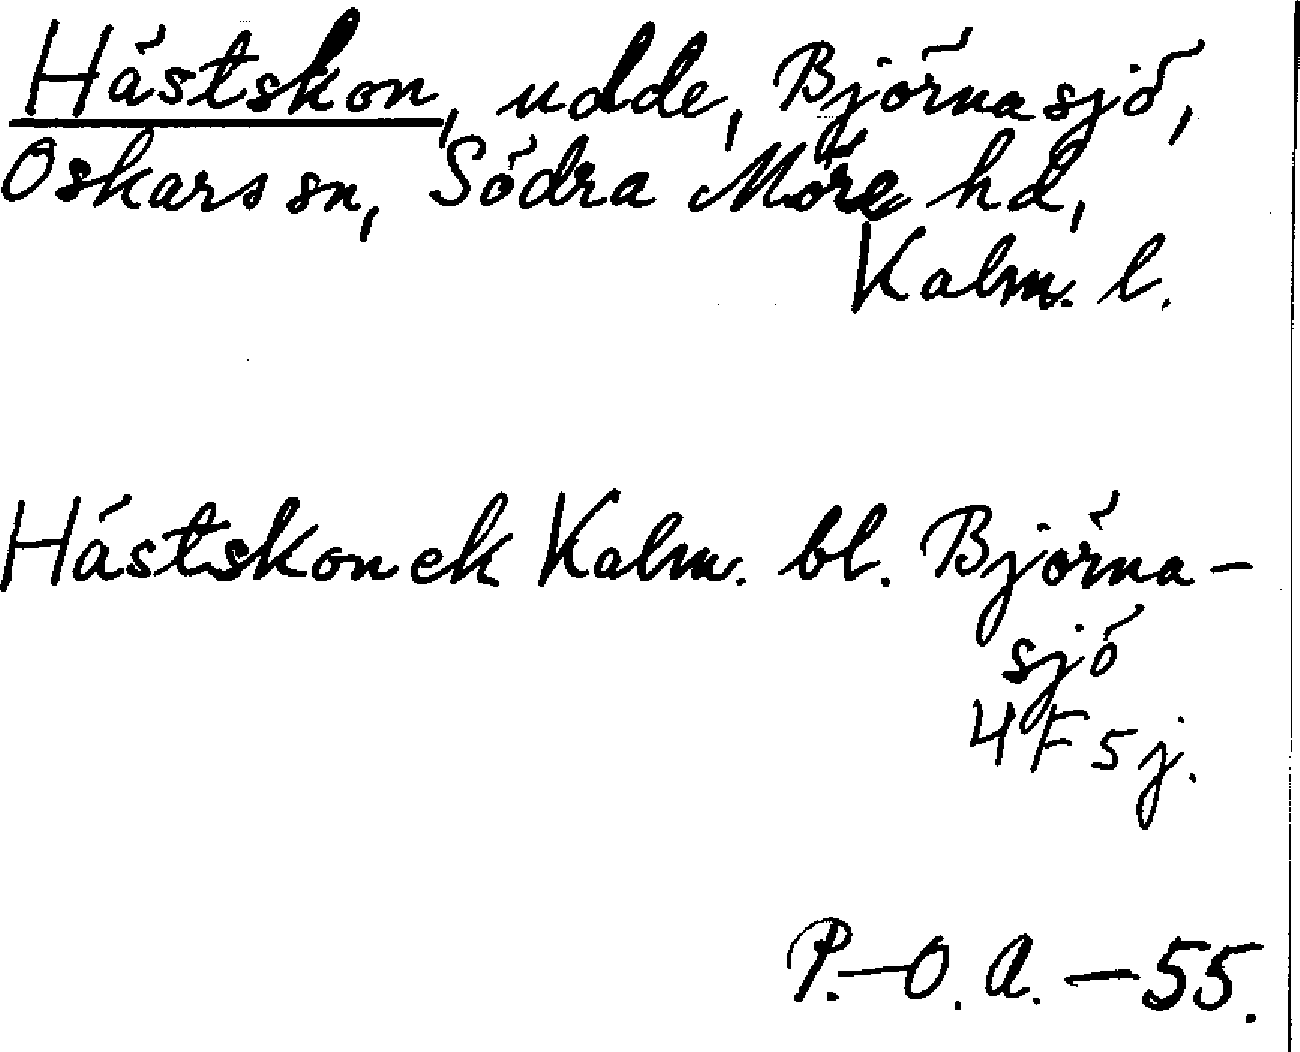 Hästskon, udde, Björnasjö,
Oskars sn, Södra Möre hd,
Kalm. l.
Hästskon ek Kalm. bl. Björna-
sjö
4F5j.
P.-O.A.-55.